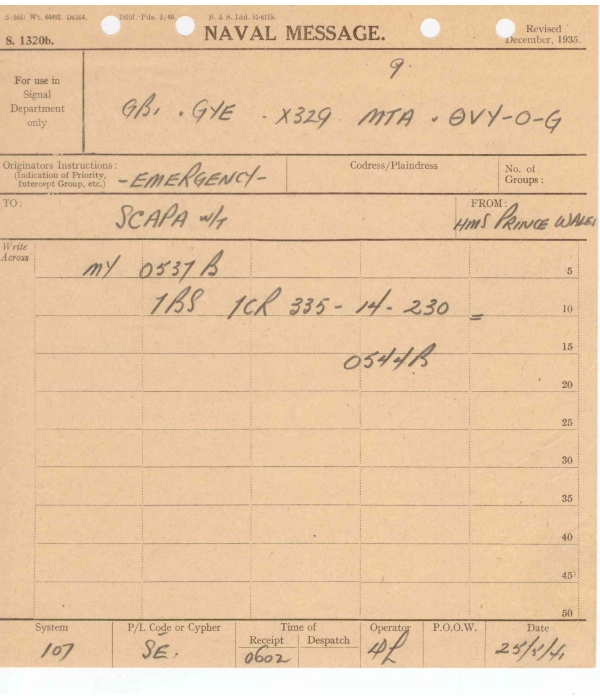 NAVAL MESSAGE.
S. 1320b.
Revised
December, 1935.
9.
For use in
Signal
Department
only
GBI . GYE . X329 MTA . OVY-O-G
Originators Instructions:
(Indication of Priority,
Intercept Group, etc.)
-EMERGENCY-
Codress/Plaindress
No. of
Groups:
TO:
SCAPA W/T
FROM:
HMS PRINCE WALES
Write
Across
MY 0537B
5
1BS 1CR 335-14-230 =
10
0544B
15
20
25
30
35
40
45
50
System
P/L Code or Cypher
Time of
Receipt
Despatch
Operator
P.O.O.W.
Date
107
SE.
0602
25/5/41